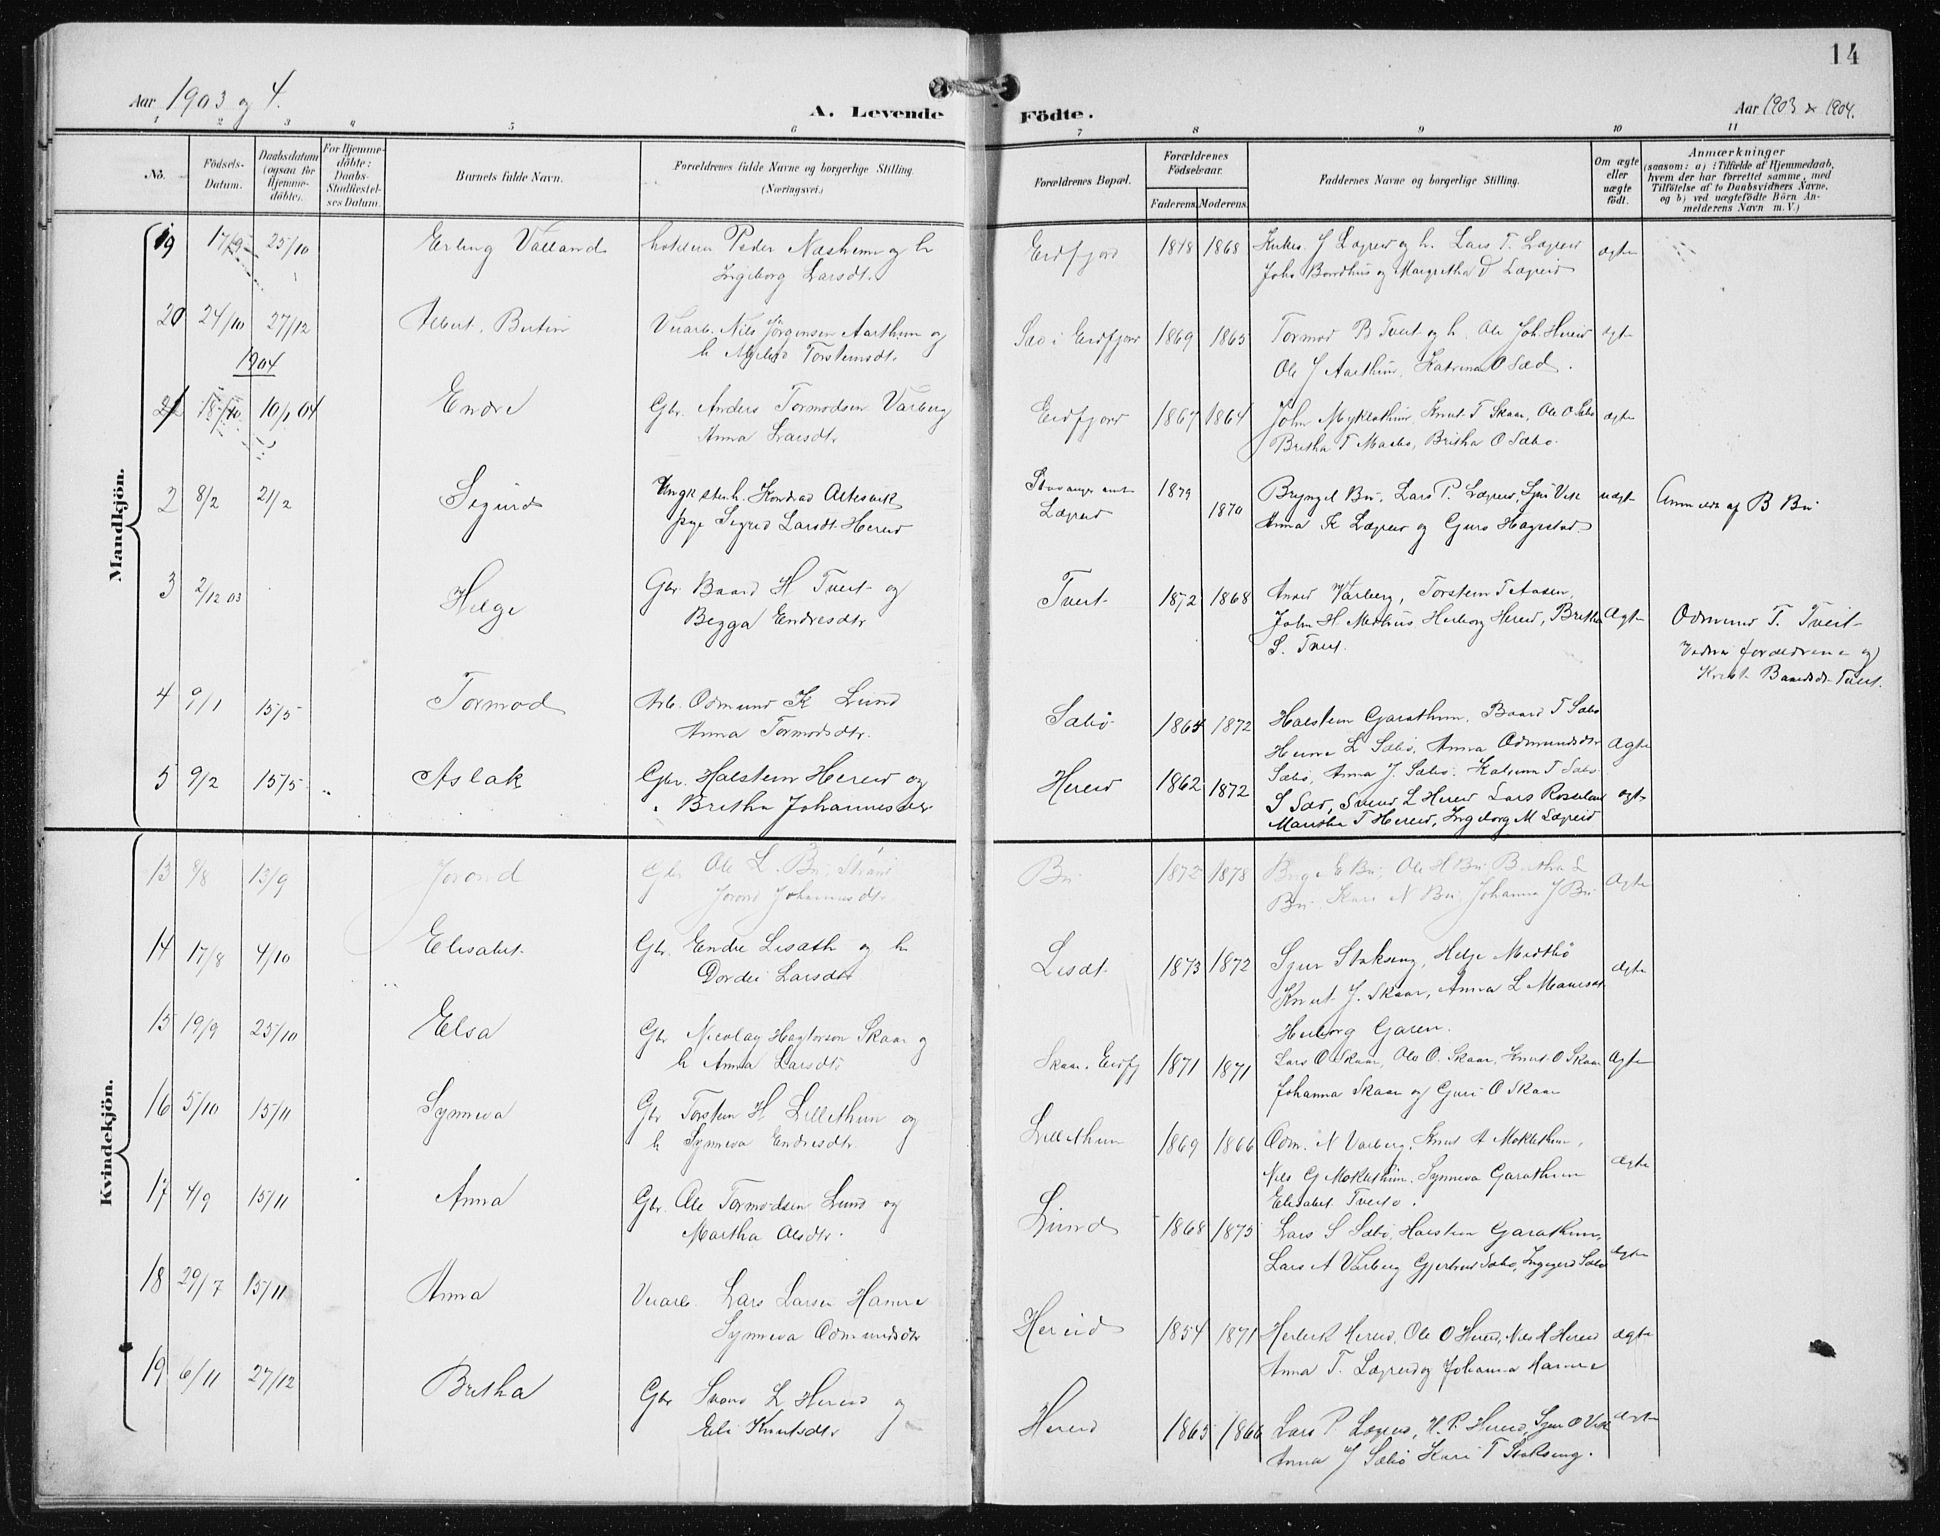 14
Aar 1903 og 4.
A. Levende Födte.
Aar 1903 & 1904.
1 2 3 4 5 6 7 8 9 10 11
No.
Födsels-Datum.
Daabsdatum (ogsaa for Hjemme-döbte).
For Hjemme-döbte: Daabs-Stadfæstel-ses Datum.
Barnets fulde Navn.
Forældrenes fulde Navne og borgerlige Stilling. (Næringsvei.)
Forældrenes Bopæl.
Forældrenes Födselsaar.
Faderens. Moderens.
Faddernes Navne og borgerlige Stilling.
Om ægte eller uægte födt.
Anmærkninger
(saasom: a) i Tilfælde af Hjemmedaab, hvem der har forrettet samme, med Tilföielse af to Daabsvidners Navne, og b) ved uægtefödte Börn An-melderens Navn m. V.)
Mandkjön.
19 17/9 25/10 Erling Valland Peder Næsheim og h Eidfjord 1868 J Lægreid og h. Lars T. Lægreid ægte
Ingeborg Larsdt. Margretha Lægreid
20 24/10 27/12 Albert Bertin Nils Jörgensen Aarthun og Sæd i Eidfjord 1869 1865 Tormod B Tveit og h. Ole Joh. Hereid ægte
h Torsteinsdt. Ole J Aarthun, Katrina O Sæd.
1904
21 18/10 10/1 04 Endre Gbr. Anders Tormodsen Varberg Eidfjord 1867 1864 John Myklethun, Knut T Skaar, Ole O Sæbø ægte
Anna Larsdt. Britha T Maabø, Britha O Sæbø.
2 8/2 21/2 Sigurd Ungk. Konrad Stavanger amt 1879 Bryngel Bu, Lars P. Lægreid, Sjur Vik uægt
pige Sigrid Larsdt. Hereid Lægreid 1870 Anna K Lægreid og Guro Hagestad. Anmeldt af B Bu
3 2/12 03 Helge Gbr. Baard H Tveit og Tveit 1872 1868 Varberg, Torstein T Aasen, Ægte
Begga Endresdtr John H Medhus Herborg Hereid, Britha Odmund T. Tveit
S. Tveit.
forældrene og
Tveit.
4 9/1 15/5 Tormod Arb. Odmund K Lund Sæbø 1864 1872 Halstein Garathun, Baard T Sæbø
Anna Tormodsdtr. L Sæbø, Anna Odmundsdtr Ægte
Sæbø, Anna J. Sæbø. T Sæbø
5 9/2 15/5 Aslak Gbr. Halstein Hereid og Hereid 1862 1872 S Sæd, Svend L Hereid Lars Roseland ægt
Britha Johannesdtr Maritha T Hereid, Ingeborg M Lægreid
Kvindekjön.
13 8/8 13/9 Jorond Gbr Ole L. Bu Bu 1872 1878 E Bu, Ole H Bu, Britha L Ægte
Jorond Johannesdt. Bu, Kari N Bu, Johanna J Bu
14 17/8 4/10 Elisabet Gbr. Endre Lisæth og h Lisæt 1873 1872 Sjur Stokseng, Helge Medthö ægte
Dordei Larsdt Knut J. Skaar, Anna L
Herborg Garen.
15 19/9 25/10 Elsa Gbr Nicolay Hagtorson Skaar og Skaar. Eidfj 1871 1871 Lars O Skaar, Ole O. Skaar, Knut O Skaar Ægte
h Anna Larsdt Johanna Skaar og Guri O Skaar
16 5/10 15/11 Synneva Gbr Torstein H Lillethun og Lillethun 1869 1866 Odm. N Varberg, Knut A Moklethun,
h Synneva Endresdtr Nils G Moklethun, Synneva Garathun ægte
Elisabet Tveito.
17 4/9 15/11 Anna Gbr. Ole Tormodsen Lund og Lund 1868 1875 Lars S Sæbø, Halstein Garathun,
Martha Olsdtr. Lars A Varberg Gjertrud Sæbø, Ingegerd Sæbø ægte
18 29/7 15/11 Anna Lars Larsen Hamre Hereid 1854 1871 Herleik Hereid, Ole O Hereid, Nils H Hereid ægte
Synneva Odmundsdtr Anna T. Lægreid og Johanna Hamre
19 6/11 27/12 Britha Gbr Svend L Hereid og Hereid 1865 1866 Lars P Lægreid, H. P. Hereid, Sjur O Vik ægte
Eli Knutsdtr Anna J Sæbø Kari T Stokseng.